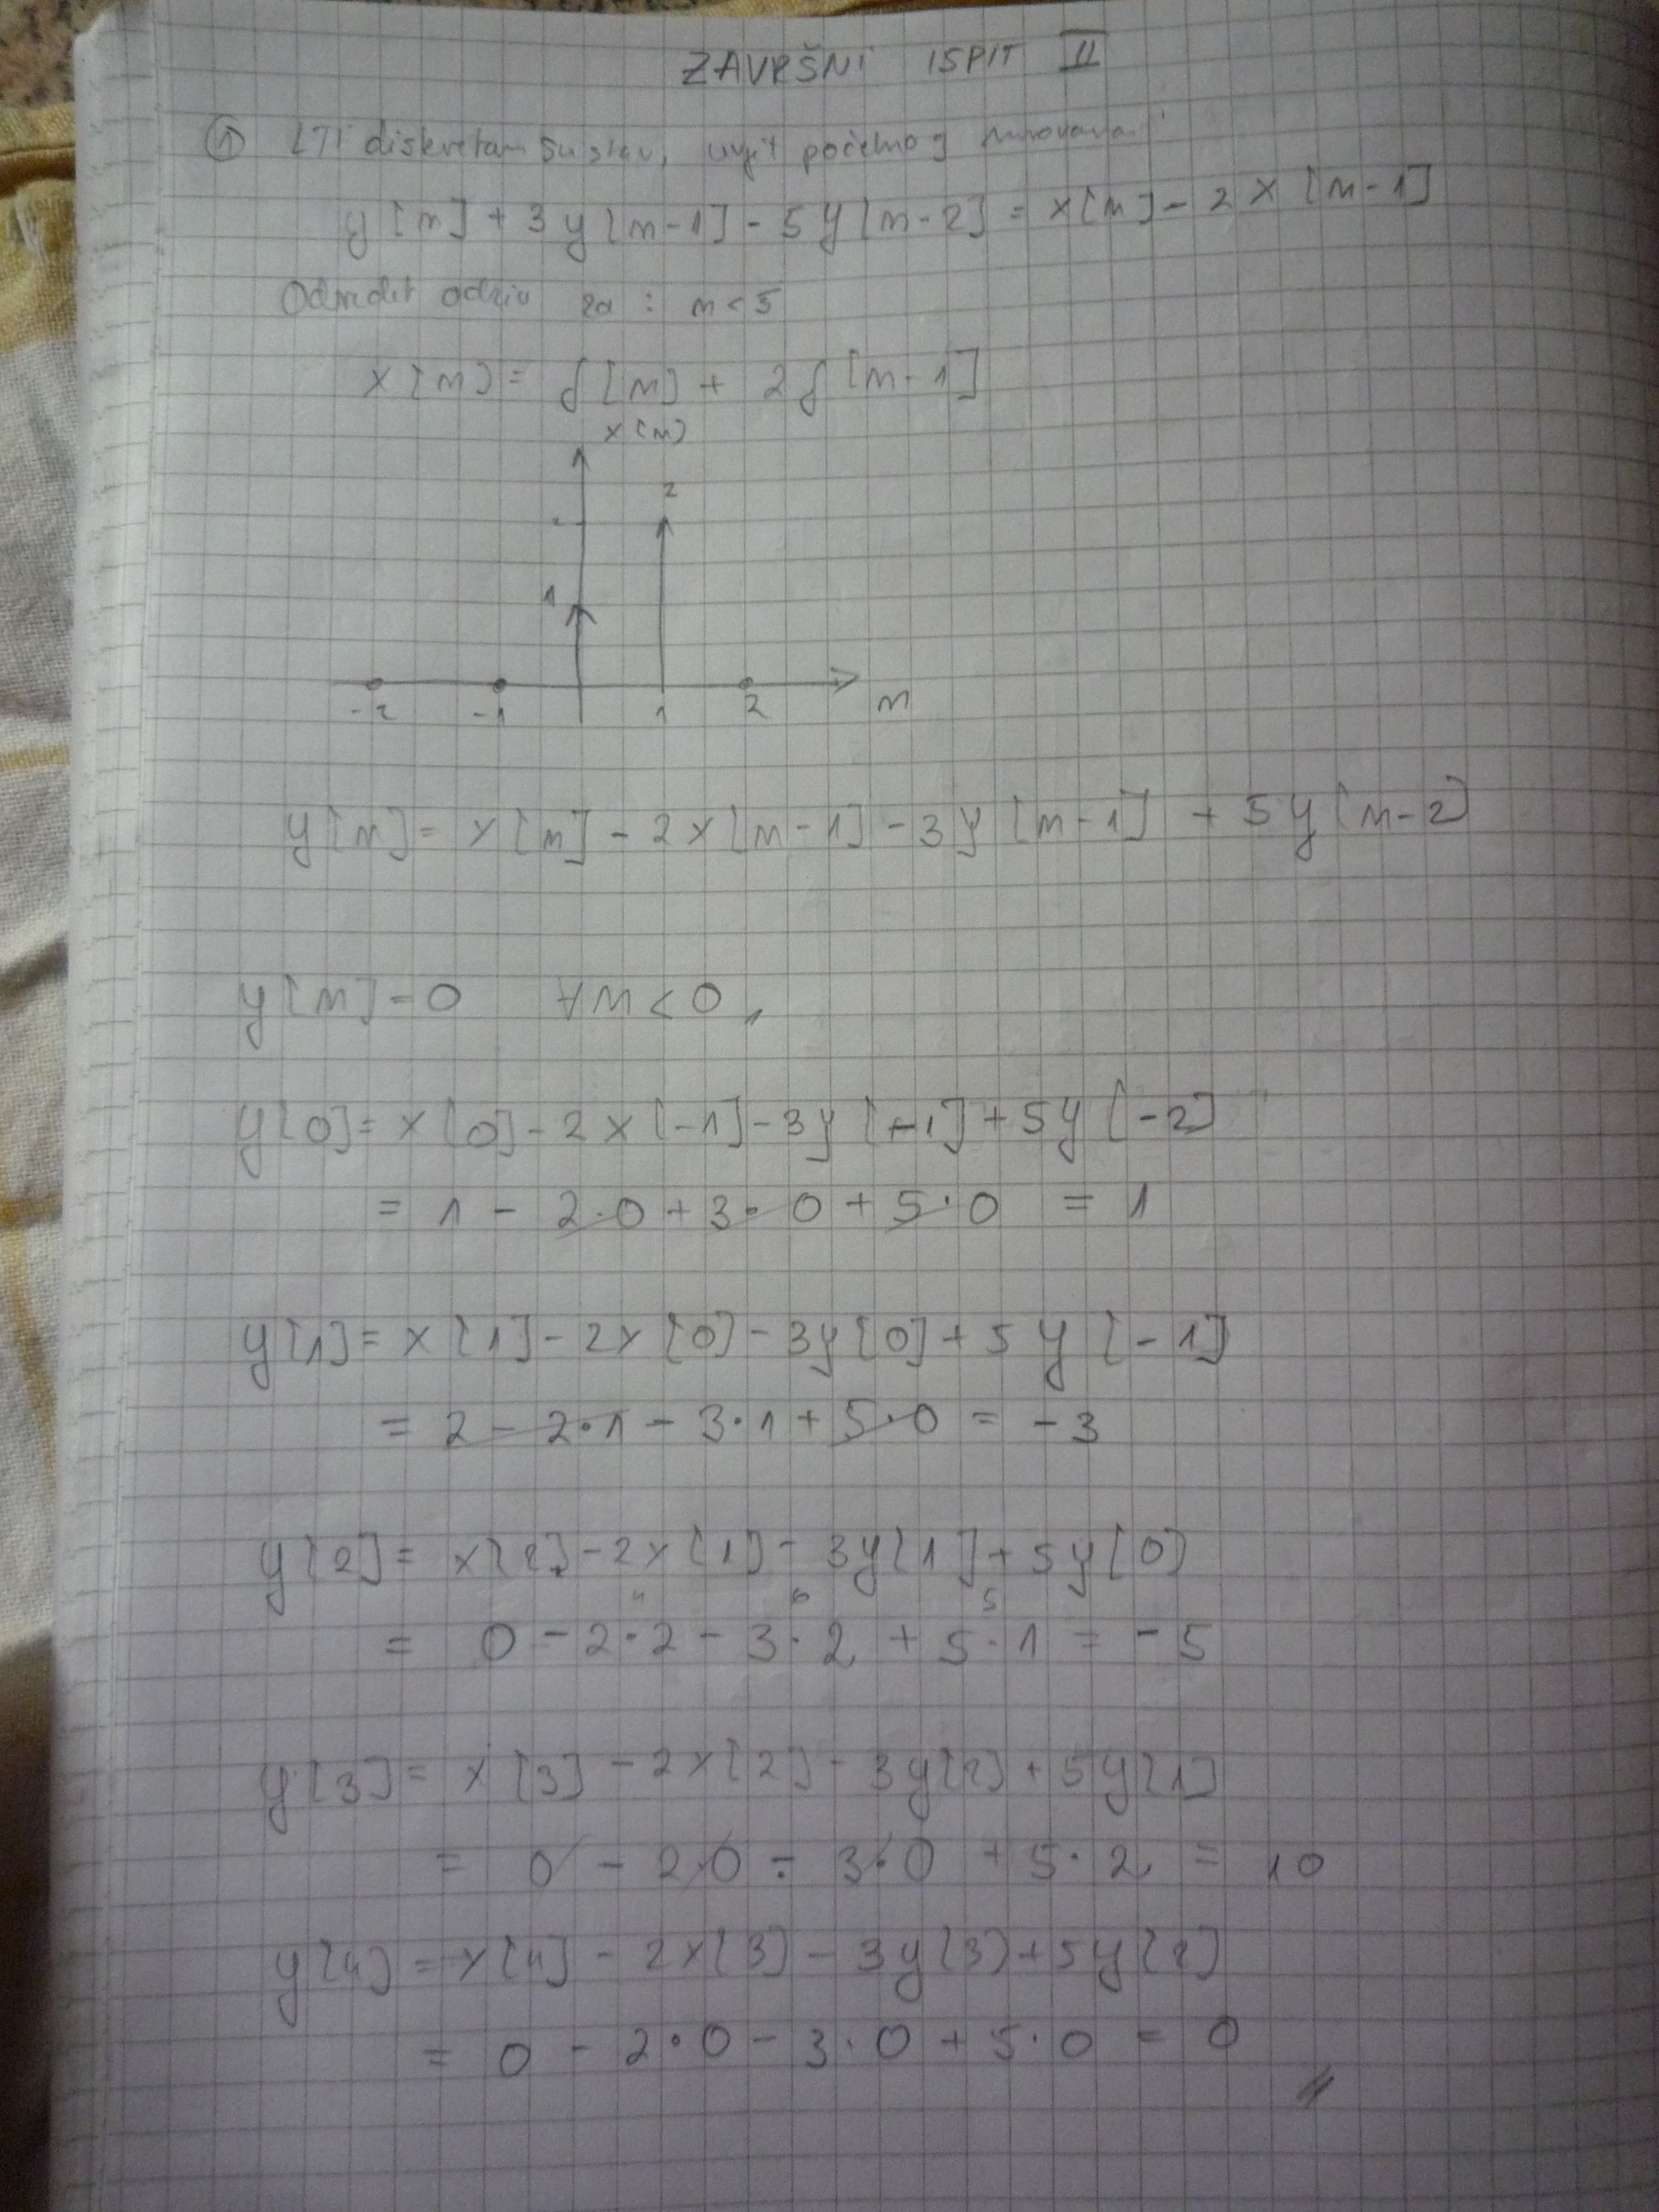 ZAVRŠNI ISPIT II
① LTI diskretan sustav, uvjet početnog mirovanja
y[n] + 3y[n-1] - 5y[n-2] = x[n] - 2x[n-1]
Odredit odziv za : n < 5
x[n] = δ[n] + 2δ[n-1]
x[n]
2
1
-2 -1 1 2 n
y[n] = x[n] - 2x[n-1] - 3y[n-1] + 5y[n-2]
y[n] = 0 ∀n<0,
y[0] = x[0] - 2x[-1] - 3y[-1] + 5y[-2]
= 1 - 2·0 + 3·0 + 5·0 = 1
y[1] = x[1] - 2x[0] - 3y[0] + 5y[-1]
= 2 - 2·1 - 3·1 + 5·0 = -3
y[2] = x[2] - 2x[1] - 3y[1] + 5y[0]
4 6 5
= 0 - 2·2 - 3·2 + 5·1 = -5
y[3] = x[3] - 2x[2] - 3y[2] + 5y[1]
= 0 - 2·0 - 3·0 + 5·2 = 10
y[4] = x[4] - 2x[3] - 3y[3] + 5y[2]
= 0 - 2·0 - 3·0 + 5·0 = 0